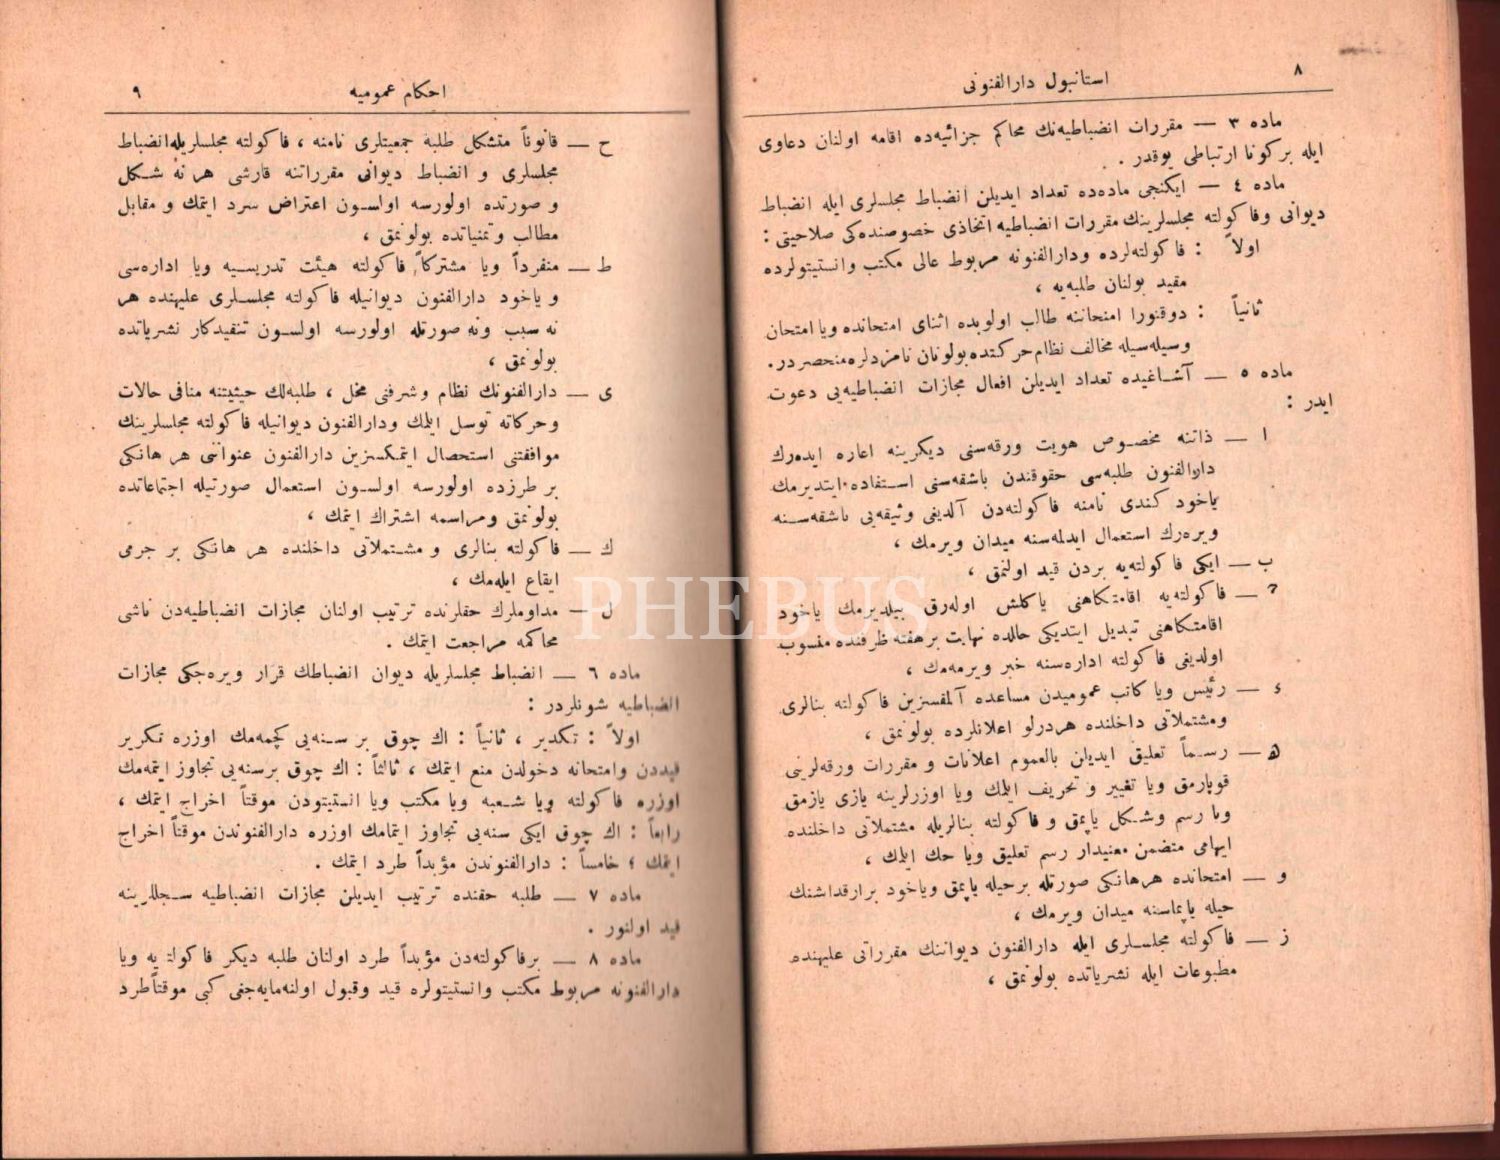 ٨
استانبول دارالفنونی
ماده ٣ — مقررات انضباطيه‌نك محاكم جزائيه‌ده اقامه اولنان دعاوی
ايله بركونا ارتباطی يوقدر .
ماده ٤ — ايكنجی ماده‌ده تعداد ايديلن انضباط مجلسلری ايله انضباط
ديوانی وفاكولته مجلسلرينك مقررات انضباطيه اتخاذی خصوصنده‌كی صلاحيتی :
اولاً : فاكولته‌لرده ودارالفنونه مربوط عالی مكتب وانستيتولرده
مقيد بولنان طلبه‌يه ،
ثانياً : دوقتورا امتحاننه طالب اولوبده اثنای امتحانده ويا امتحان
وسيله‌سيله مخالف نظام حركتده بولونان نامزدلره منحصردر .
ماده ٥ — آشاغيده تعداد ايديلن افعال مجازات انضباطيه‌يی دعوت
ايدر :
ا — ذاتنه مخصوص هويت ورقه‌سنی ديكرينه اعاره ايده‌رك
دارالفنون طلبه‌سی حقوقندن باشقه‌سنی استفاده ايتديرمك
ياخود كندی نامنه فاكولته‌دن آلديغی وثيقه‌يی باشقه‌سنه
ويره‌رك استعمال ايدلمه‌سنه ميدان ويرمك ،
ب — ايكی فاكولته‌يه بردن قيد اولنمق ،
ج — فاكولته‌يه اقامتكاهنی ياكلش اوله‌رق بيلديرمك ياخود
اقامتكاهنی تبديل ايتديكی حالده نهايت برهفته ظرفنده منسوب
اولديغی فاكولته اداره‌سنه خبر ويرمه‌مك ،
ء — رئيس ويا كاتب عموميدن مساعده آلمقسزين فاكولته بنالری
ومشتملاتی داخلنده هردرلو اعلانلرده بولونمق ،
ه — رسماً تعليق ايديلن بالعموم اعلانات و مقررات ورقه‌لرينی
قوپارمق ويا تغيير و تحريف ايلمك ويا اوزرلرينه يازی يازمق
ويا رسم وشكل ياپمق و فاكولته بنالريله مشتملاتی داخلنده
ايهامی متضمن معنيدار رسم تعليق ويا حك ايلمك ،
و — امتحانده هرهانكی صورتله برحيله ياپمق وياخود برارقداشنك
حيله ياپماسنه ميدان ويرمك ،
ز — فاكولته مجلسلری ايله دارالفنون ديواننك مقرراتی عليهنده
مطبوعات ايله نشرياتده بولونمق ،
احكام عموميه
٩
ح — قانوناً متشكل طلبه جمعيتلری نامنه ، فاكولته مجلسلريله انضباط
مجلسلری و انضباط ديوانی مقرراتنه قارشی هر نه شكل
و صورتده اولورسه اولسون اعتراض سرد ايتمك و مقابل
مطالب وتمنياتده بولونمق ،
ط — منفرداً ويا مشتركاً فاكولته هيئت تدريسيه ويا اداره‌سی
و ياخود دارالفنون ديوانيله فاكولته مجلسلری عليهنده هر
نه سبب ونه صورتله اولورسه اولسون تنقيدكار نشرياتده
بولونمق ،
ی — دارالفنونك نظام وشرفنی مخل ، طلبه‌لك حيثيتنه منافی حالات
وحركاته توسل ايلمك ودارالفنون ديوانيله فاكولته مجلسلرينك
موافقتنی استحصال ايتمكسزين دارالفنون عنواننی هر هانكی
بر طرزده اولورسه اولسون استعمال صورتيله اجتماعاتده
بولونمق ومراسمه اشتراك ايتمك ،
ك — فاكولته بنالری و مشتملاتی داخلنده هر هانكی بر جرمی
ايقاع ايله‌مك ،
ل — مداوملرك حقلرنده ترتيب اولنان مجازات انضباطيه‌دن ناشی
محاكمه مراجعت ايتمك .
ماده ٦ — انضباط مجلسلريله ديوان انضباطك قرار ويره‌جكی مجازات
انضباطيه شونلردر :
اولاً : تكدير ، ثانياً : اك چوق بر سنه‌يی كچمه‌مك اوزره تكرير
قيددن وامتحانه دخولدن منع ايتمك ، ثالثاً : اك چوق برسنه‌يی تجاوز ايتمه‌مك
اوزره فاكولته ويا شعبه ويا مكتب ويا انستيتودن موقتاً اخراج ايتمك ،
رابعاً : اك چوق ايكی سنه‌يی تجاوز ايتمامك اوزره دارالفنوندن موقتاً اخراج
ايتمك ؛ خامساً : دارالفنوندن مؤبداً طرد ايتمك .
ماده ٧ — طلبه حقنده ترتيب ايديلن مجازات انضباطيه سجللرينه
قيد اولنور .
ماده ٨ — برفاكولته‌دن مؤبداً طرد اولنان طلبه ديكر فاكولته‌يه ويا
دارالفنونه مربوط مكتب وانستيتولره قيد وقبول اولنه‌مايه‌جغی كبی موقتاً طرد
PHEBUS